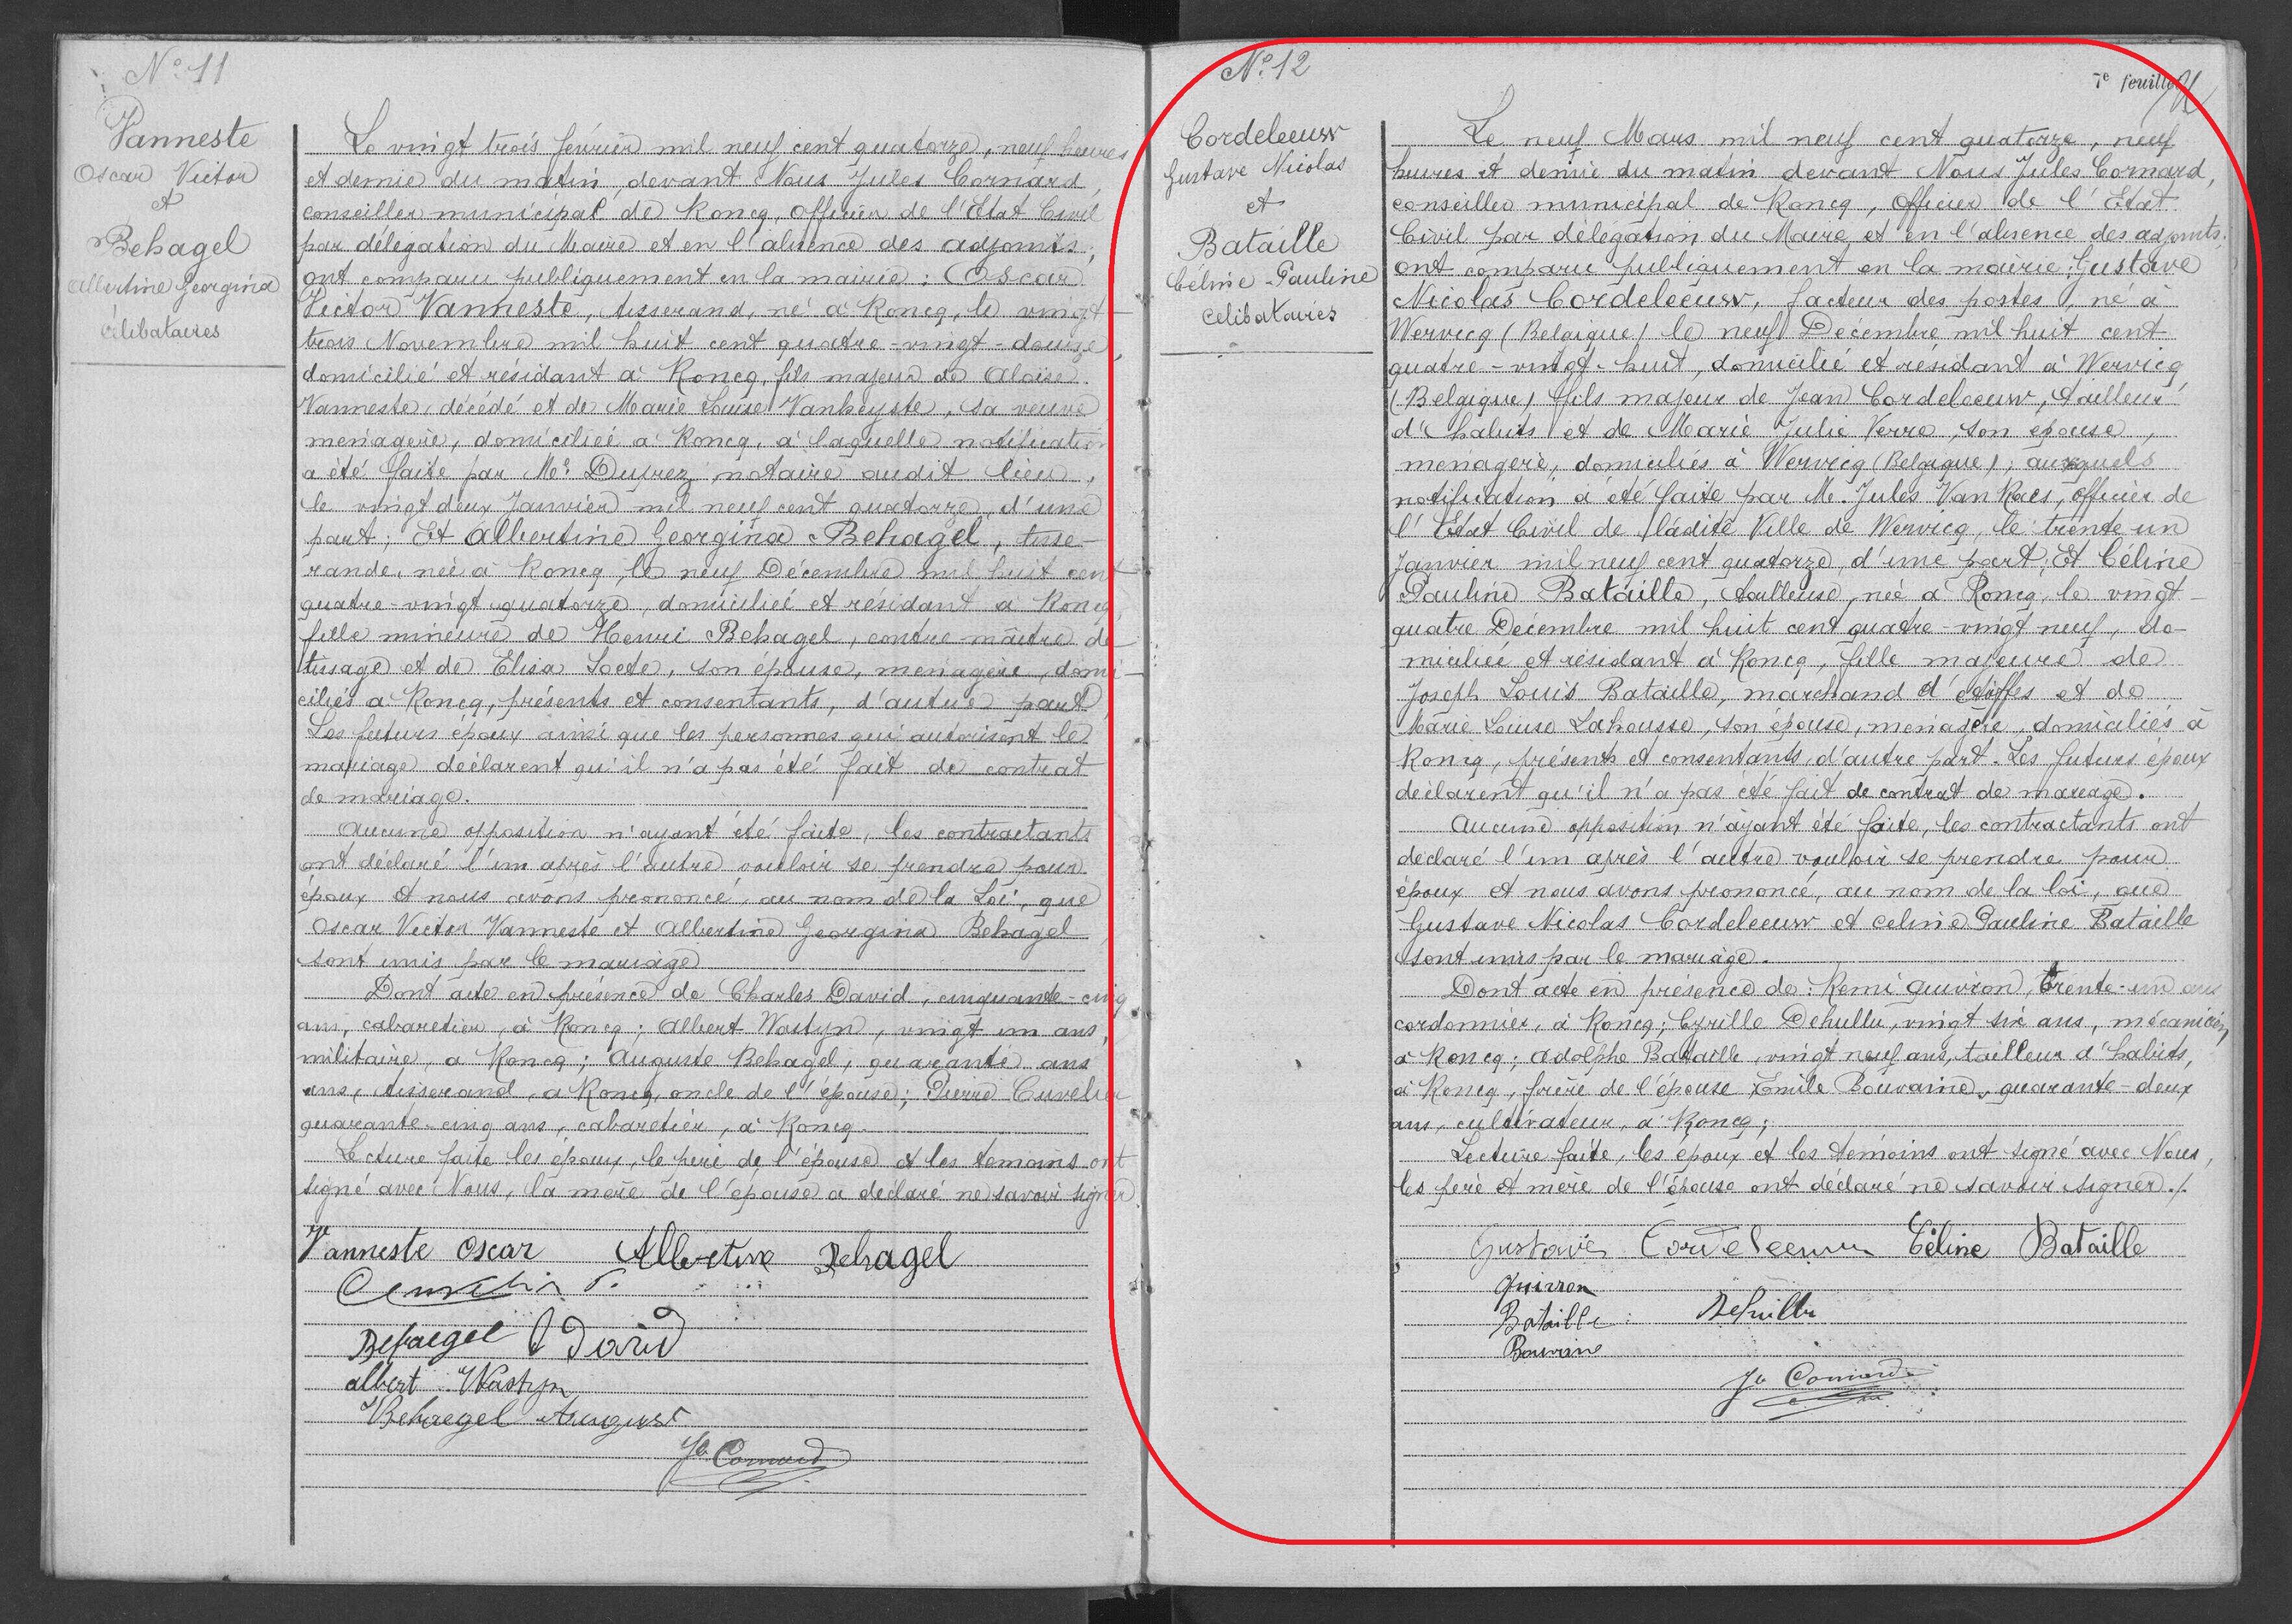 Nº 11
Vanneste
Oscar Victor
et
Behagel
Albertine Georgina
célibataires
Le vingt trois février mil neuf cent quatorze, neuf heures
et demie du matin, devant Nous Jules Cornard,
conseiller municipal de Roncq, Officier de l'Etat Civil
par délégation du Maire et en l'absence des adjoints,
ont comparu publiquement en la mairie : Oscar
Victor Vanneste, tisserand, né à Roncq, le vingt-
trois Novembre mil huit cent quatre-vingt-douze,
domicilié et résidant à Roncq, fils majeur de Aloïse
Vanneste, décédé et de Marie Louise Vanheyste, sa veuve
ménagère, domiciliée à Roncq, à laquelle notification
a été faite par Me Dufrez, notaire audit lieu,
le vingt deux Janvier mil neuf cent quatorze, d'une
part; Et Albertine Georgina Behagel, tisse-
rande, née à Roncq, le neuf Décembre mil huit cent
quatre-vingt quatorze, domiciliée et résidant à Roncq,
fille mineure de Henri Behagel, contre maître de
tissage et de Elisa Socte, son épouse, ménagère, domi-
ciliés à Roncq, présents et consentants, d'autre part,
Les futurs époux ainsi que les personnes qui autorisent le
mariage déclarent qu'il n'a pas été fait de contrat
de mariage.
Aucune opposition n'ayant été faite, les contractants
ont déclaré l'un après l'autre vouloir se prendre pour
époux et nous avons prononcé, au nom de la Loi, que
Oscar Victor Vanneste et Albertine Georgina Behagel
sont unis par le mariage
Dont acte en présence de Charles David, cinquante-cinq
ans, cabaretier, à Roncq; Albert Wastyn, vingt un ans,
militaire, à Roncq; Auguste Behagel, quarante ans
ans, tisserand, à Roncq, oncle de l'épouse; Pierre Cuvelier
quarante-cinq ans, cabaretier, à Roncq.
Lecture faite les époux, le père de l'épouse et les témoins ont
signé avec Nous, la mère de l'épouse a déclaré ne savoir signer
Vanneste Oscar Albertine Behagel
Behagel David
albert Wastyn
Behaegel August
Js Cornard
Nº 12
7e feuillet
Cordeleeuw
Gustave Nicolas
et
Bataille
Céline-Pauline
célibataires
Le neuf Mars mil neuf cent quatorze, neuf
heures et demie du matin devant Nous Jules Cornard,
conseiller municipal de Roncq, Officier de l'Etat
Civil par délégation du Maire et en l'absence des adjoints.
ont comparu publiquement en la mairie : Gustave
Nicolas Cordeleeuw, facteur des postes, né à
Wervicq (Belgique) le neuf Décembre mil huit cent
quatre-vingt-huit, domicilié et résidant à Wervicq
(Belgique) fils majeur de Jean Cordeleeuw, tailleur
d'habits et de Marie Julie Verre, son épouse,
ménagère, domiciliés à Wervicq (Belgique), auxquels
notification a été faite par M. Jules Van Raes, officier de
l'Etat Civil de ladite Ville de Wervicq, le trente un
Janvier mil neuf cent quatorze, d'une part; Et Céline
Pauline Bataille, soulleuse, née à Roncq, le vingt-
quatre Décembre mil huit cent quatre-vingt neuf, do-
miciliée et résidant à Roncq, fille majeure de
Joseph Louis Bataille, marchand d'étoffes et de
Marie Louise Lahousse, son épouse, ménagère, domiciliés à
Roncq, présents et consentants, d'autre part. Les futurs époux
déclarent qu'il n'a pas été fait de contrat de mariage.
Aucune opposition n'ayant été faite, les contractants ont
déclaré l'un après l'autre vouloir se prendre pour
époux et nous avons prononcé, au nom de la loi, que
Gustave Nicolas Cordeleeuw et Celine Pauline Bataille
sont unis par le mariage.
Dont acte en présence de : Remi Quivron, trente-un ans
cordonnier, à Roncq; Cyrille Dehullu, vingt six ans, mécanicien,
à Roncq; Adolphe Bataille, vingt neuf ans, tailleur d'habits,
à Roncq, frère de l'épouse; Emile Bouvaine, quarante-deux
ans, cultivateur, à Roncq;
Lecture faite, les époux et les témoins ont signé avec Nous,
les père et mère de l'épouse ont déclaré ne savoir signer./.
Gustave Cordeleeuw Céline Bataille
Quivron
Bataille Dehullu
Bouvaine
Js Cornard